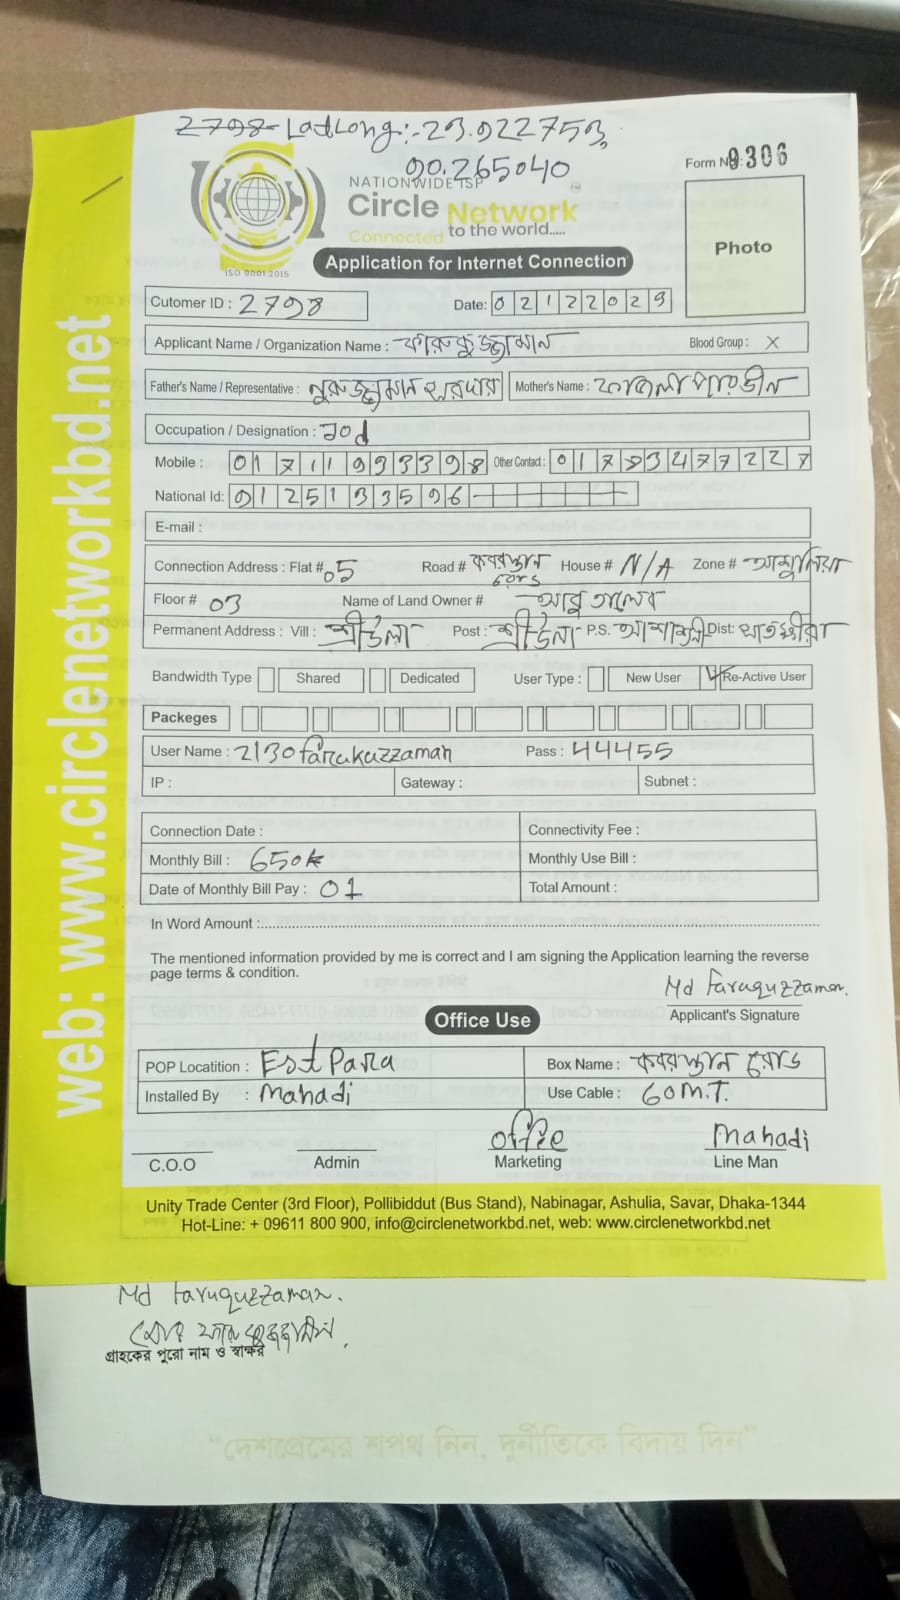 2798 LatLong:-23.922753,
90.265040
Form No: 9306
NATIONWIDE ISP
Circle Network
Connected to the world.....
ISO 9001:2015
Photo
Application for Internet Connection
Cutomer ID : 2798 Date: 02122023
Applicant Name / Organization Name : ফারুকুজ্জামান Blood Group : X
Father's Name / Representative : নুরুজ্জামান সরদার Mother's Name : ফাজিলা পারভীন
Occupation / Designation : Job
Mobile : 01711993398 Other Contact : 01793477227
National Id: 9125133596
E-mail :
Connection Address : Flat # 05 Road # কবরস্তান রোড House # N/A Zone # আশুলিয়া
Floor # 03 Name of Land Owner # আবু তালেব
Permanent Address : Vill : শ্রীউলা Post : শ্রীউলা P.S. আশাশুনি Dist: সাতক্ষীরা
Bandwidth Type Shared Dedicated User Type : New User Re-Active User
Packeges
User Name : 2130farukuzzaman Pass : 44455
IP : Gateway : Subnet :
Connection Date : Connectivity Fee :
Monthly Bill : 650tk Monthly Use Bill :
Date of Monthly Bill Pay : 01 Total Amount :
In Word Amount :
The mentioned information provided by me is correct and I am signing the Application learning the reverse
page terms & condition.
Md Faruquzzaman.
Applicant's Signature
Office Use
POP Locatition : Est Para Box Name : কবরস্তান রোড
Installed By : Mahadi Use Cable : 60M.T.
office Mahadi
C.O.O Admin Marketing Line Man
Unity Trade Center (3rd Floor), Pollibiddut (Bus Stand), Nabinagar, Ashulia, Savar, Dhaka-1344
Hot-Line: + 09611 800 900, info@circlenetworkbd.net, web: www.circlenetworkbd.net
web: www.circlenetworkbd.net
Md Faruquzzaman.
মোঃ ফারুকুজ্জামান
গ্রাহকের পুরো নাম ও স্বাক্ষর
"দেশপ্রেমের শপথ নিন, দুর্নীতিকে বিদায় দিন"